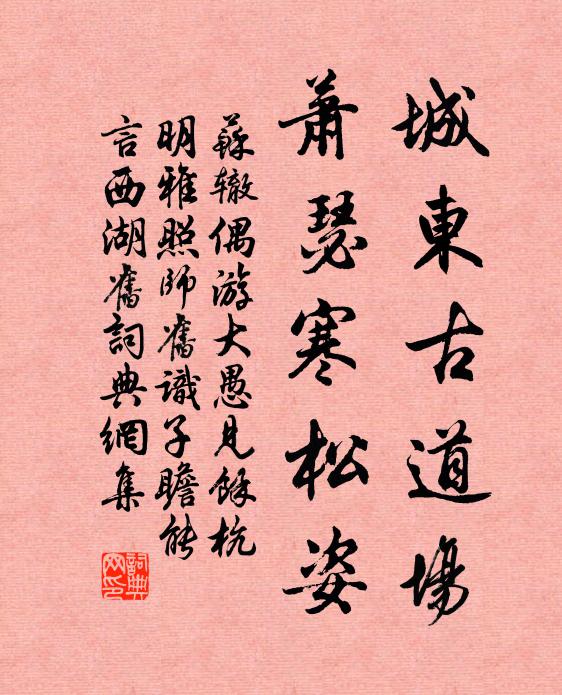 城東古道場
蕭瑟寒松姿
蘇辙偶游大愚見餘杭
明雅照師舊識子瞻能
言西湖舊詞典網集
詞典
网印